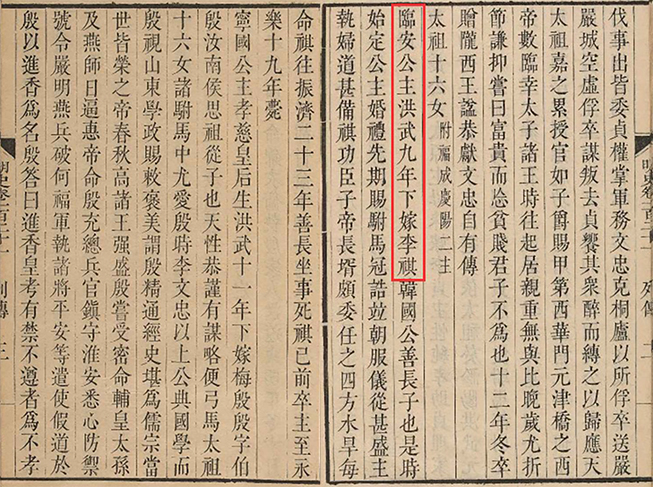 伐事出皆委貞權掌軍務文忠克桐廬以所俘卒送嚴
嚴城空虛俘卒謀叛去貞饗其衆醉而縛之以歸應天
太祖嘉之累授官如子爵賜甲第西華門元津橋之西
帝數臨幸太子諸王時往起居親重無與比晚歲尤折
節謙抑嘗曰富貴而忘貧賤君子不爲也十二年冬卒
贈隴西王諡恭獻文忠自有傳
太祖十六女 附福成慶陽二主
臨安公主洪武九年下嫁李祺韓國公善長子也是時
始定公主婚禮先期賜駙馬冠誥竝朝服儀從甚盛主
執婦道甚備祺功臣子帝長壻頗委任之四方水旱每
命祺往振濟二十三年善長坐事死祺已前卒主至永
樂十九年薨
寧國公主孝慈皇后生洪武十一年下嫁梅殷殷字伯
殷汝南侯思祖從子也天性恭謹有謀略便弓馬太祖
十六女諸駙馬中尤愛殷時李文忠以上公典國學而
殷視山東學政賜敕褒美謂殷精通經史堪爲儒宗當
世皆榮之帝春秋高諸王强盛殷嘗受密命輔皇太孫
及燕師日逼惠帝命殷充總兵官鎮守淮安悉心防禦
號令嚴明燕兵破何福軍執諸將平安等遣使假道於
殷以進香爲名殷答曰進香皇考有禁不遵者爲不孝